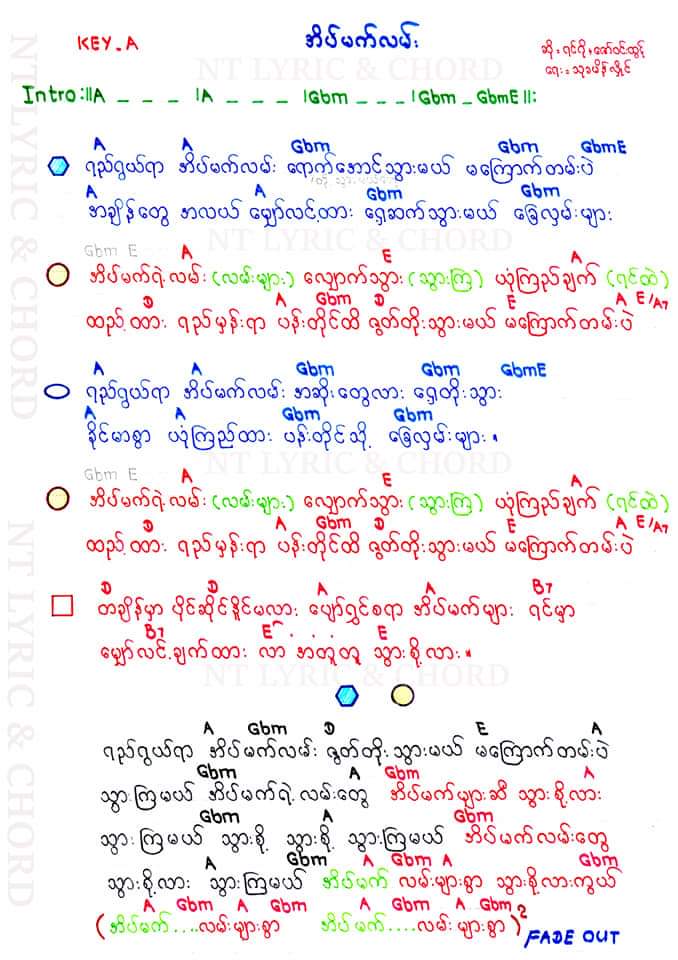 KEY_A
အိပ်မက်လမ်း
ဆို = ရင်ဂို + ဇော်ဝင်းထွဋ်
ရေး = သုခမိန်လှိုင်
NT LYRIC & CHORD
Intro:||A _ _ _ |A _ _ _ |Gbm _ _ _ |Gbm _ GbmE ||:
A A Gbm Gbm GbmE
ရည်ရွယ်ရာ အိပ်မက်လမ်း ရောက်အောင်သွားမယ် မကြောက်တမ်းပဲ
A A Gbm Gbm
အချိန်တွေ အလယ် မျှော်လင့်ထား ရှေ့ဆက်သွားမယ် ခြေလှမ်းများ
NT LYRIC & CHORD
Gbm E A E A
အိပ်မက်ရဲ့လမ်း (လမ်းများ) လျှောက်သွား (သွားကြ) ယုံကြည်ချက် (ရင်ထဲ)
D A Gbm D E A E/A7
ထည့်ထား ရည်မှန်းရာ ပန်းတိုင်ထိ ဇွတ်တိုးသွားမယ် မကြောက်တမ်းပဲ
A A Gbm Gbm GbmE
ရည်ရွယ်ရာ အိပ်မက်လမ်း အဆိုးတွေလား ရှေ့တိုးသွား
A A Gbm Gbm
ခိုင်မာစွာ ယုံကြည်ထား ပန်းတိုင်သို့ ခြေလှမ်းများ ။
NT LYRIC & CHORD
Gbm E A E A
အိပ်မက်ရဲ့လမ်း (လမ်းများ) လျှောက်သွား (သွားကြ) ယုံကြည်ချက် (ရင်ထဲ)
D A Gbm D E A E/A7
ထည့်ထား ရည်မှန်းရာ ပန်းတိုင်ထိ ဇွတ်တိုးသွားမယ် မကြောက်တမ်းပဲ
D D A A B7
တချိန်မှာ ပိုင်ဆိုင်နိုင်မလား ပျော်ရွှင်စရာ အိပ်မက်များ ရင်မှာ
B7 E . . . E
မျှော်လင့်ချက်ထား လာ အတူတူ သွားစို့လား ။
NT LYRIC & CHORD
A Gbm D E A
ရည်ရွယ်ရာ အိပ်မက်လမ်း ဇွတ်တိုးသွားမယ် မကြောက်တမ်းပဲ
Gbm A Gbm A
သွားကြမယ် အိပ်မက်ရဲ့လမ်းတွေ အိပ်မက်များဆီ သွားစို့လား
Gbm A Gbm
သွားကြမယ် သွားစို့ သွားစို့ သွားကြမယ် အိပ်မက်လမ်းတွေ
A Gbm A Gbm A Gbm
သွားစို့လား သွားကြမယ် အိပ်မက် လမ်းများစွာ သွားစို့လားကွယ်
A Gbm A Gbm A Gbm A Gbm
(အိပ်မက်....လမ်းများစွာ အိပ်မက်....လမ်းများစွာ)2
FADE OUT
NT LYRIC & CHORD
NT LYRIC & CHORD